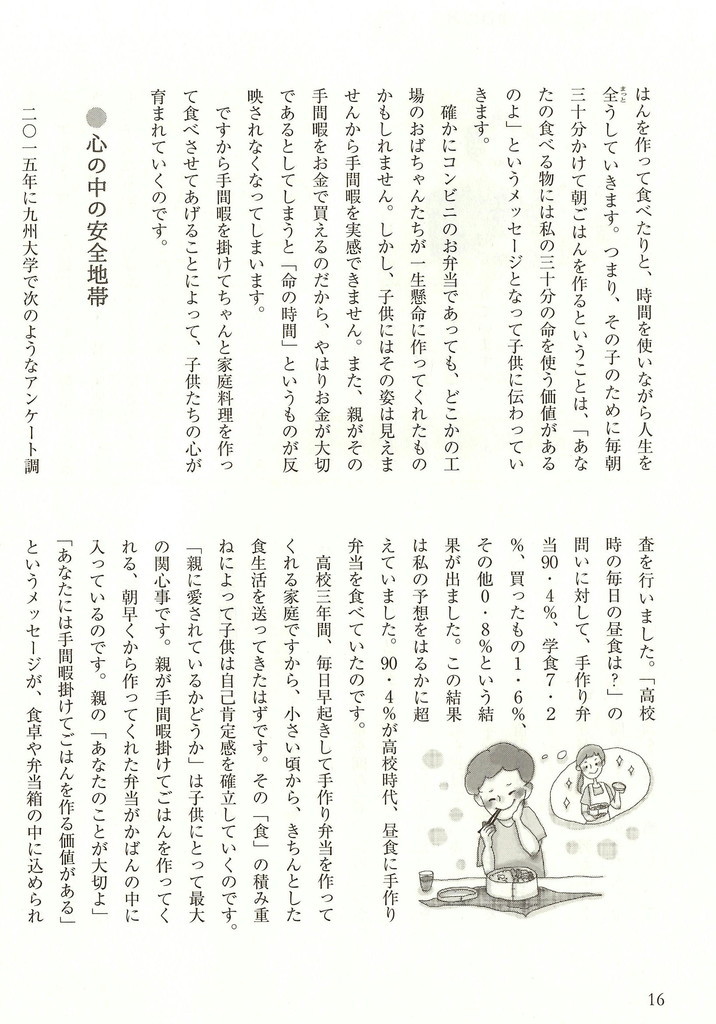 はんを作って食べたりと、時間を使いながら人生を
全うしていきます。つまり、その子のために毎朝
まっと
三十分かけて朝ごはんを作るということは、「あな
たの食べる物には私の三十分の命を使う価値がある
のよ」というメッセージとなって子供に伝わってい
きます。
確かにコンビニのお弁当であっても、どこかの工
場のおばちゃんたちが一生懸命に作ってくれたもの
かもしれません。しかし、子供にはその姿は見えま
せんから手間暇を実感できません。また、親がその
手間暇をお金で買えるのだから、やはりお金が大切
であるとしてしまうと「命の時間」というものが反
映されなくなってしまいます。
ですから手間暇を掛けてちゃんと家庭料理を作っ
て食べさせてあげることによって、子供たちの心が
育まれていくのです。
●心の中の安全地帯
二〇一五年に九州大学で次のようなアンケート調
査を行いました。「高校
時の毎日の昼食は?」の
問いに対して、手作り弁
当90・4%、学食7・2
%、買ったもの1・6%、
その他0・8%という結
果が出ました。この結果
は私の予想をはるかに超
えていました。90・4%が高校時代、昼食に手作り
弁当を食べていたのです。
高校三年間、毎日早起きして手作り弁当を作って
くれる家庭ですから、小さい頃から、きちんとした
食生活を送ってきたはずです。その「食」の積み重
ねによって子供は自己肯定感を確立していくのです。
「親に愛されているかどうか」は子供にとって最大
の関心事です。親が手間暇掛けてごはんを作ってく
れる、朝早くから作ってくれた弁当がかばんの中に
入っているのです。親の「あなたのことが大切よ」
「あなたには手間暇掛けてごはんを作る価値がある」
というメッセージが、食卓や弁当箱の中に込められ
16